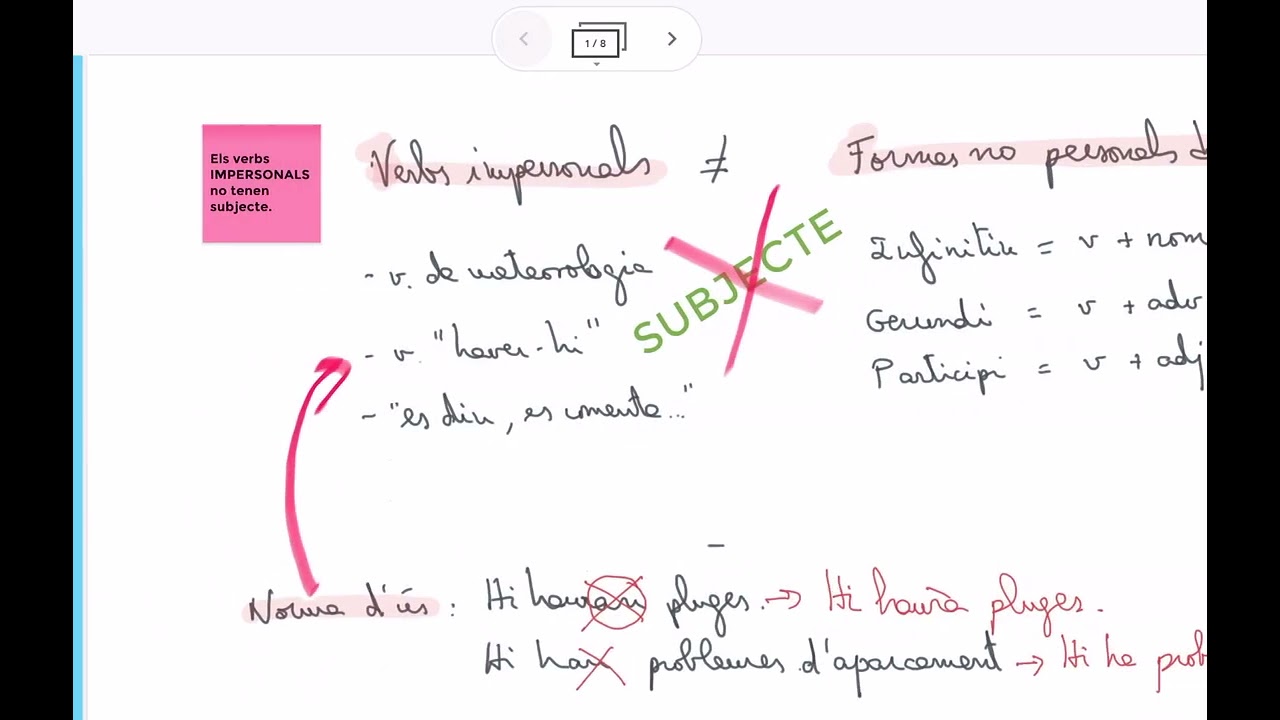 1 / 8
Els verbs
IMPERSONALS
no tenen
subjecte.
Verbs impersonals ≠ Formes no personals d
- v. de meteorologia
- v. "haver-hi"
- "es diu, es comenta..."
SUBJECTE
Infinitiu = v + nom
Gerundi = v + adv
Participi = v + adj
Norma d'ús: Hi hauran pluges. → Hi haurà pluges.
Hi han problemes d'aparcament → Hi ha prob